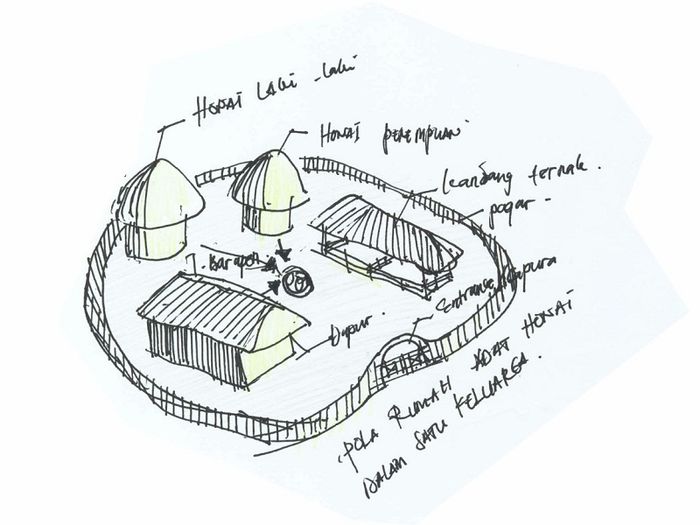 HONAI LAKI - laki
HONAI PEREMPUAN
kandang ternak.
pagar -
Barapen
Entrance/gapura
Dapur.
.POLA RUMAH ADAT HONAI
DALAM SATU KELUARGA.